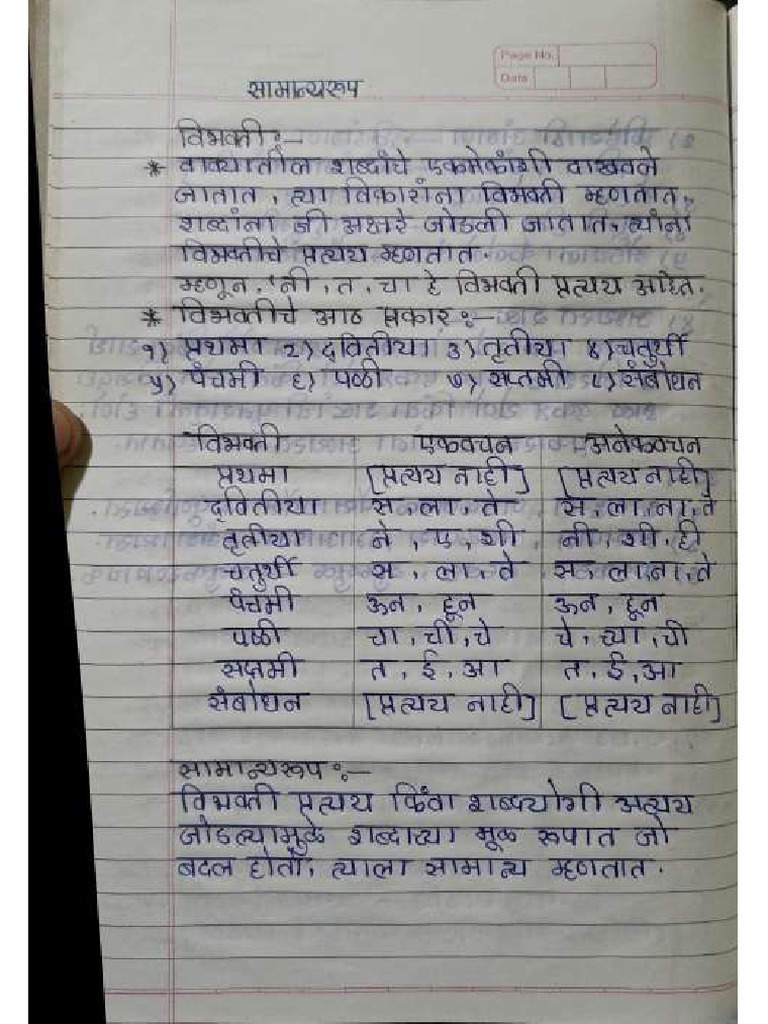 Page No.
Date
सामान्यरुप
विभक्ती :-
* वाक्यातील शब्दांचे एकमेकांशी दाखवले
जातात, त्या विकारांना विभक्ती म्हणतात,
शब्दांना जी अक्षरे जोडली जातात, त्यांना
विभक्तीचे प्रत्यय म्हणतात.
म्हणून, 'नी, त, चा हे विभक्ती प्रत्यय आहेत.
* विभक्तीचे आठ प्रकार :-
१) प्रथमा २) द्वितीया ३) तृतीया ४) चतुर्थी
५) पंचमी ६) षष्ठी ७) सप्तमी ८) संबोधन
विभक्ती एकवचन अनेकवचन
प्रथमा [प्रत्यय नाही] [प्रत्यय नाही]
द्वितीया स, ला, ते स, ला, ना, ते
तृतीया ने, ए, शी नी, शी, ही
चतुर्थी स, ला, ते स, ला, ना, ते
पंचमी ऊन, हून ऊन, हून
षष्ठी चा, ची, चे चे, च्या, ची
सप्तमी त, ई, आ त, ई, आ
संबोधन [प्रत्यय नाही] [प्रत्यय नाही]
सामान्यरूप :-
विभक्ती प्रत्यय किंवा शब्दयोगी अव्यय
जोडल्यामुळे शब्दाच्या मूळ रूपात जो
बदल होतो, त्याला सामान्य म्हणतात.